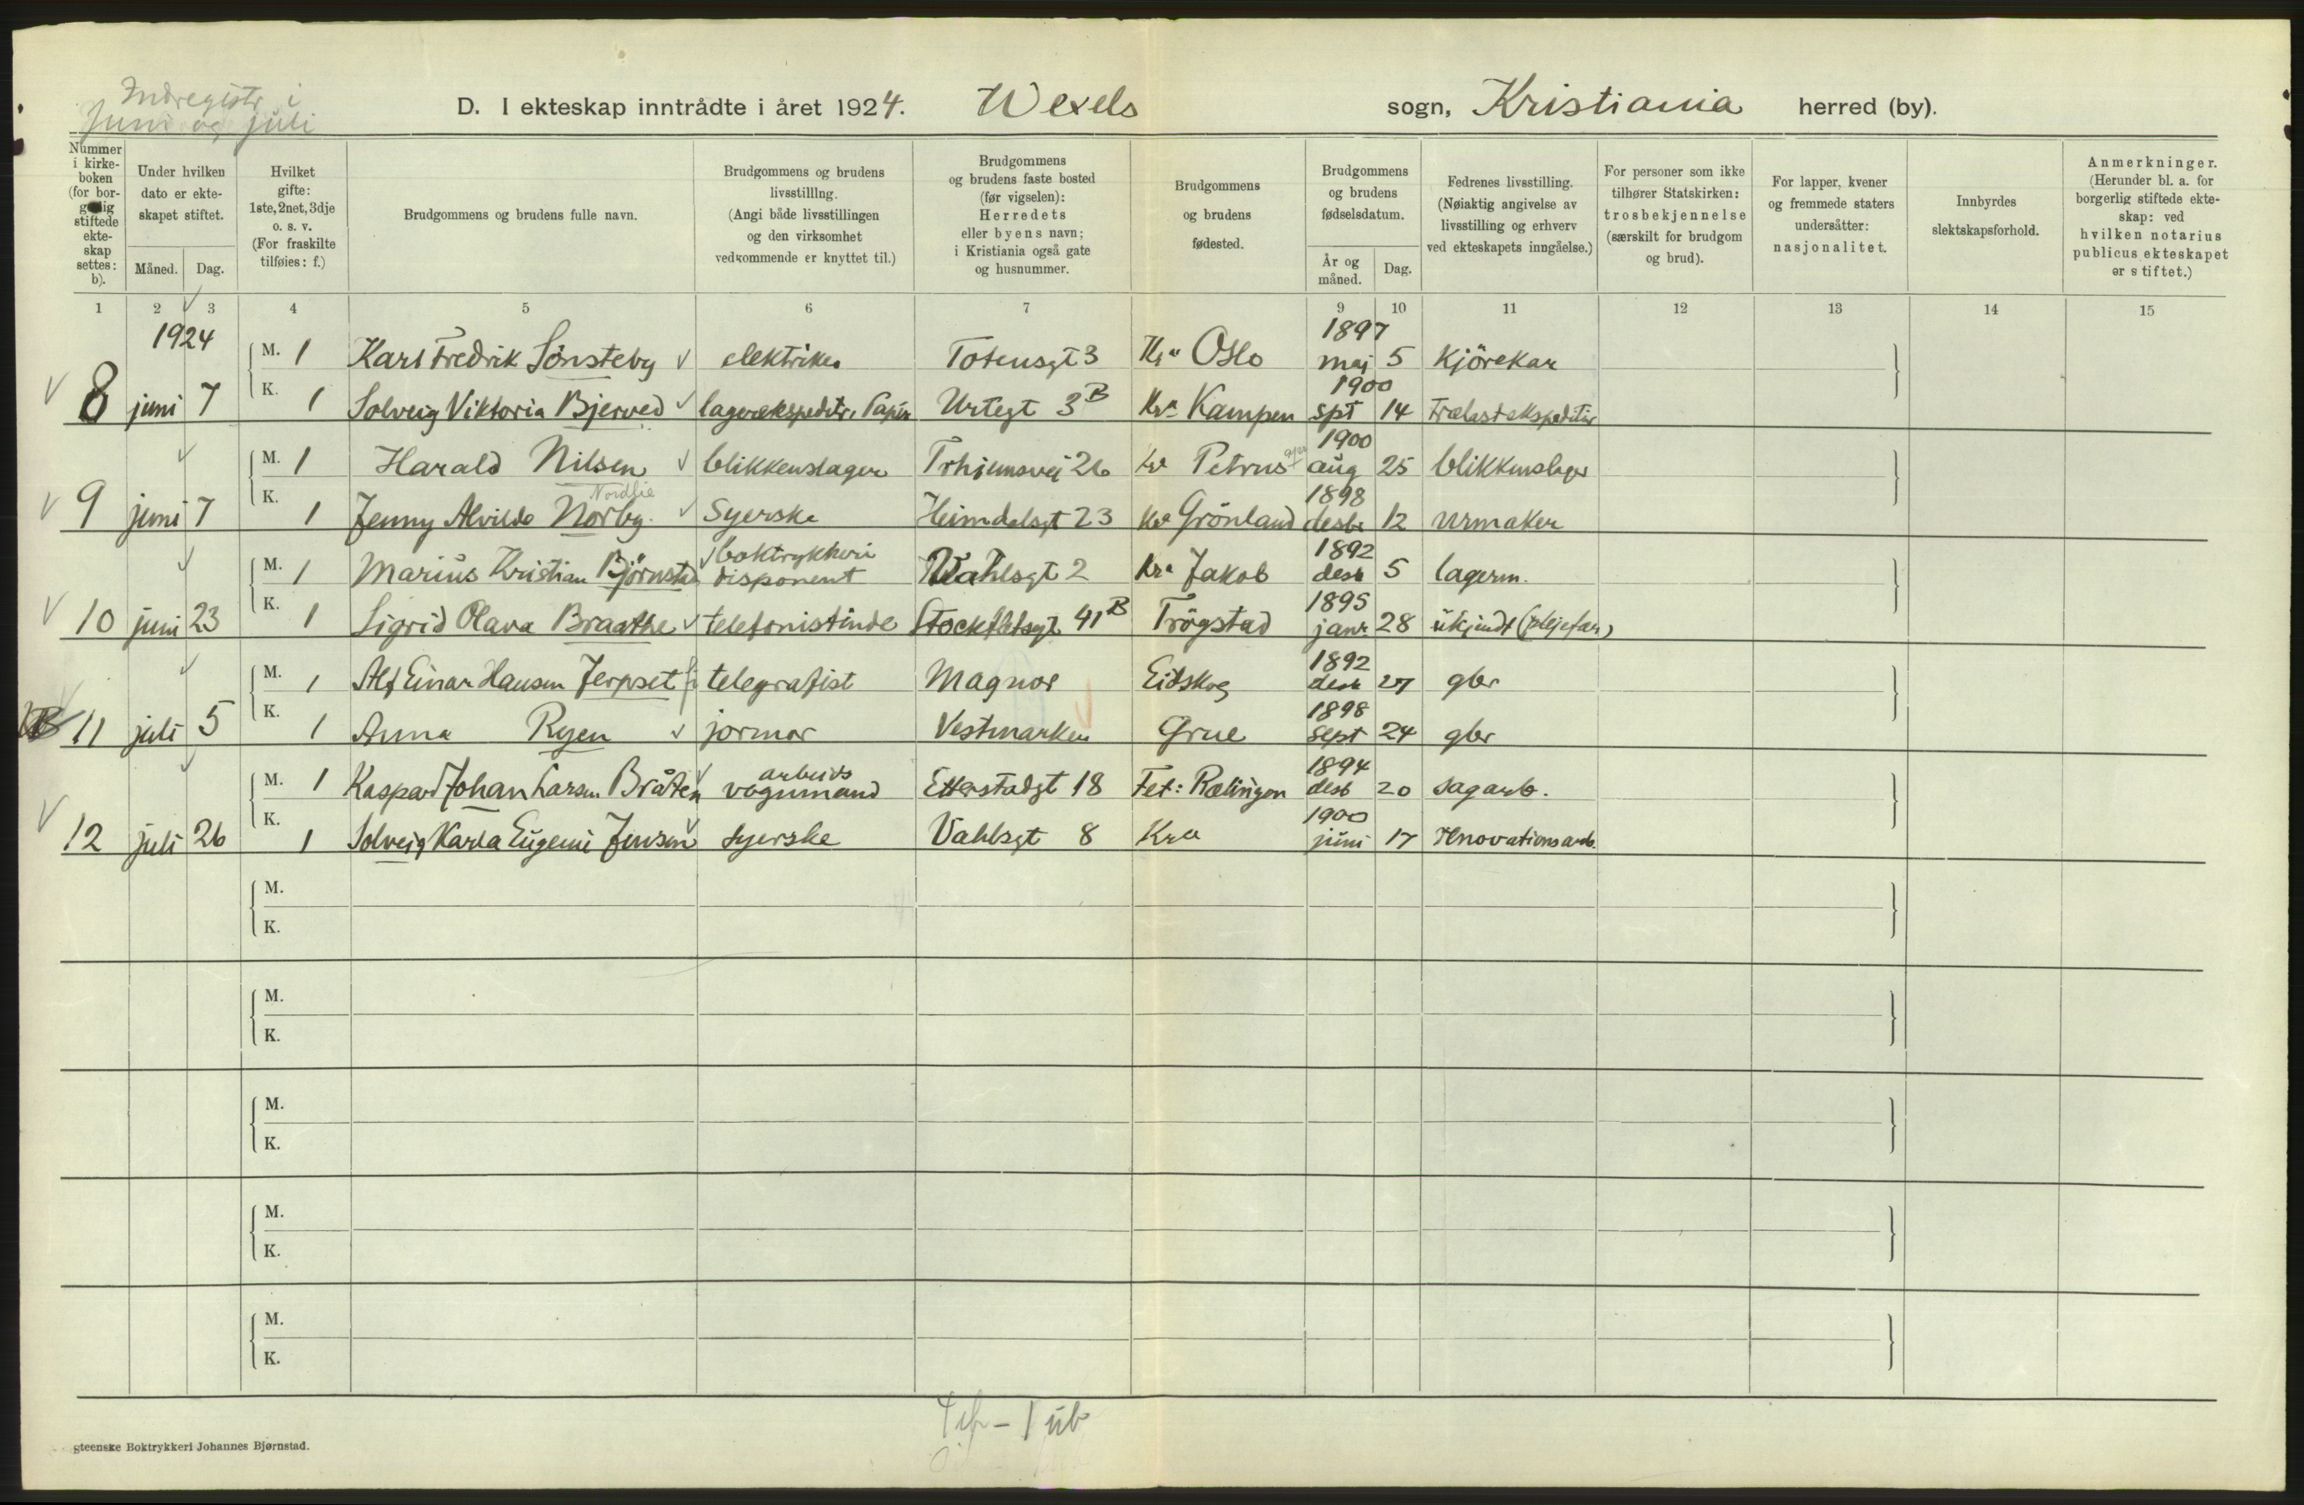 Indregistr i
Juni og juli
D. I ekteskap inntrådte i året 1924. Wexels sogn, Kristiania herred (by).
Nummer i kirkeboken (for borgerlig stiftede ekteskap settes: b).
Under hvilken dato er ekteskapet stiftet.
Måned. Dag.
Hvilket gifte: 1ste, 2net, 3dje o. s. v. (For fraskilte tilføies: f.)
Brudgommens og brudens fulle navn.
Brudgommens og brudens livsstilling. (Angi både livsstillingen og den virksomhet vedkommende er knyttet til.)
Brudgommens og brudens faste bosted (før vigselen): Herredets eller byens navn; i Kristiania også gate og husnummer.
Brudgommens og brudens fødested.
Brudgommens og brudens fødselsdatum.
År og måned. Dag.
Fedrenes livsstilling. (Nøiaktig angivelse av livsstilling og erhverv ved ekteskapets inngåelse.)
For personer som ikke tilhører Statskirken: trosbekjennelse (særskilt for brudgom og brud).
For lapper, kvener og fremmede staters undersåtter: nasjonalitet.
Innbyrdes slektskapsforhold.
Anmerkninger. (Herunder bl. a. for borgerlig stiftede ekteskap: ved hvilken notarius publicus ekteskapet er stiftet.)
1 2 3 4 5 6 7 9 10 11 12 13 14 15
1924
M. 1 Karl Fredrik Sönsteby elektriker Totensgt 3 Kra Oslo 1897 maj 5 Kjörekar
8 juni 7 K. 1 Solveig Viktoria Bjerved lagerekspeditr. Papir Urtegt 3B Kra Kampen 1900 spt 14 Trælastekspeditør
M. 1 Harald Nilsen blikkenslager Trhjemsvei 26 Kr Petrus 1900 aug 25 blikkenslager
Nordlie
9 juni 7 K. 1 Jenny Alvilde Norby. Syerske Heimdalsgt 23 Kra Grönland 1898 desbr 12 urmaker
M. 1 Marius Kristian Björnstad boktrykkeri disponent Wahlsgt 2 Kra Jakob 1892 desb 5 lagerm.
10 juni 23 K. 1 Sigrid Olava Braathe telefonistinde Stockfletsgt 41B Trögstad 1895 janr. 28 ukjendt (plejefar)
M. 1 Alf Einar Hansen Jerpset telegrafist Magnor Eidskog 1892 desb 27 gbr
11 juli 5 K. 1 Anna Ryen jormor Vestmarken Grue 1898 sept 24 gbr
M. 1 Kaspard Johan Larsen Bråten arbeids vognmand Etterstadgt 18 Fet: Rælingen 1894 desb 20 sagarb.
12 juli 26 K. 1 Solveig Karla Eugenie Jensen syerske Vahlsgt 8 Kra 1900 juni 17 renovationsarb.
M.
K.
M.
K.
M.
K.
M.
K.
M.
K.
gteenske Boktrykkeri Johannes Bjørnstad.